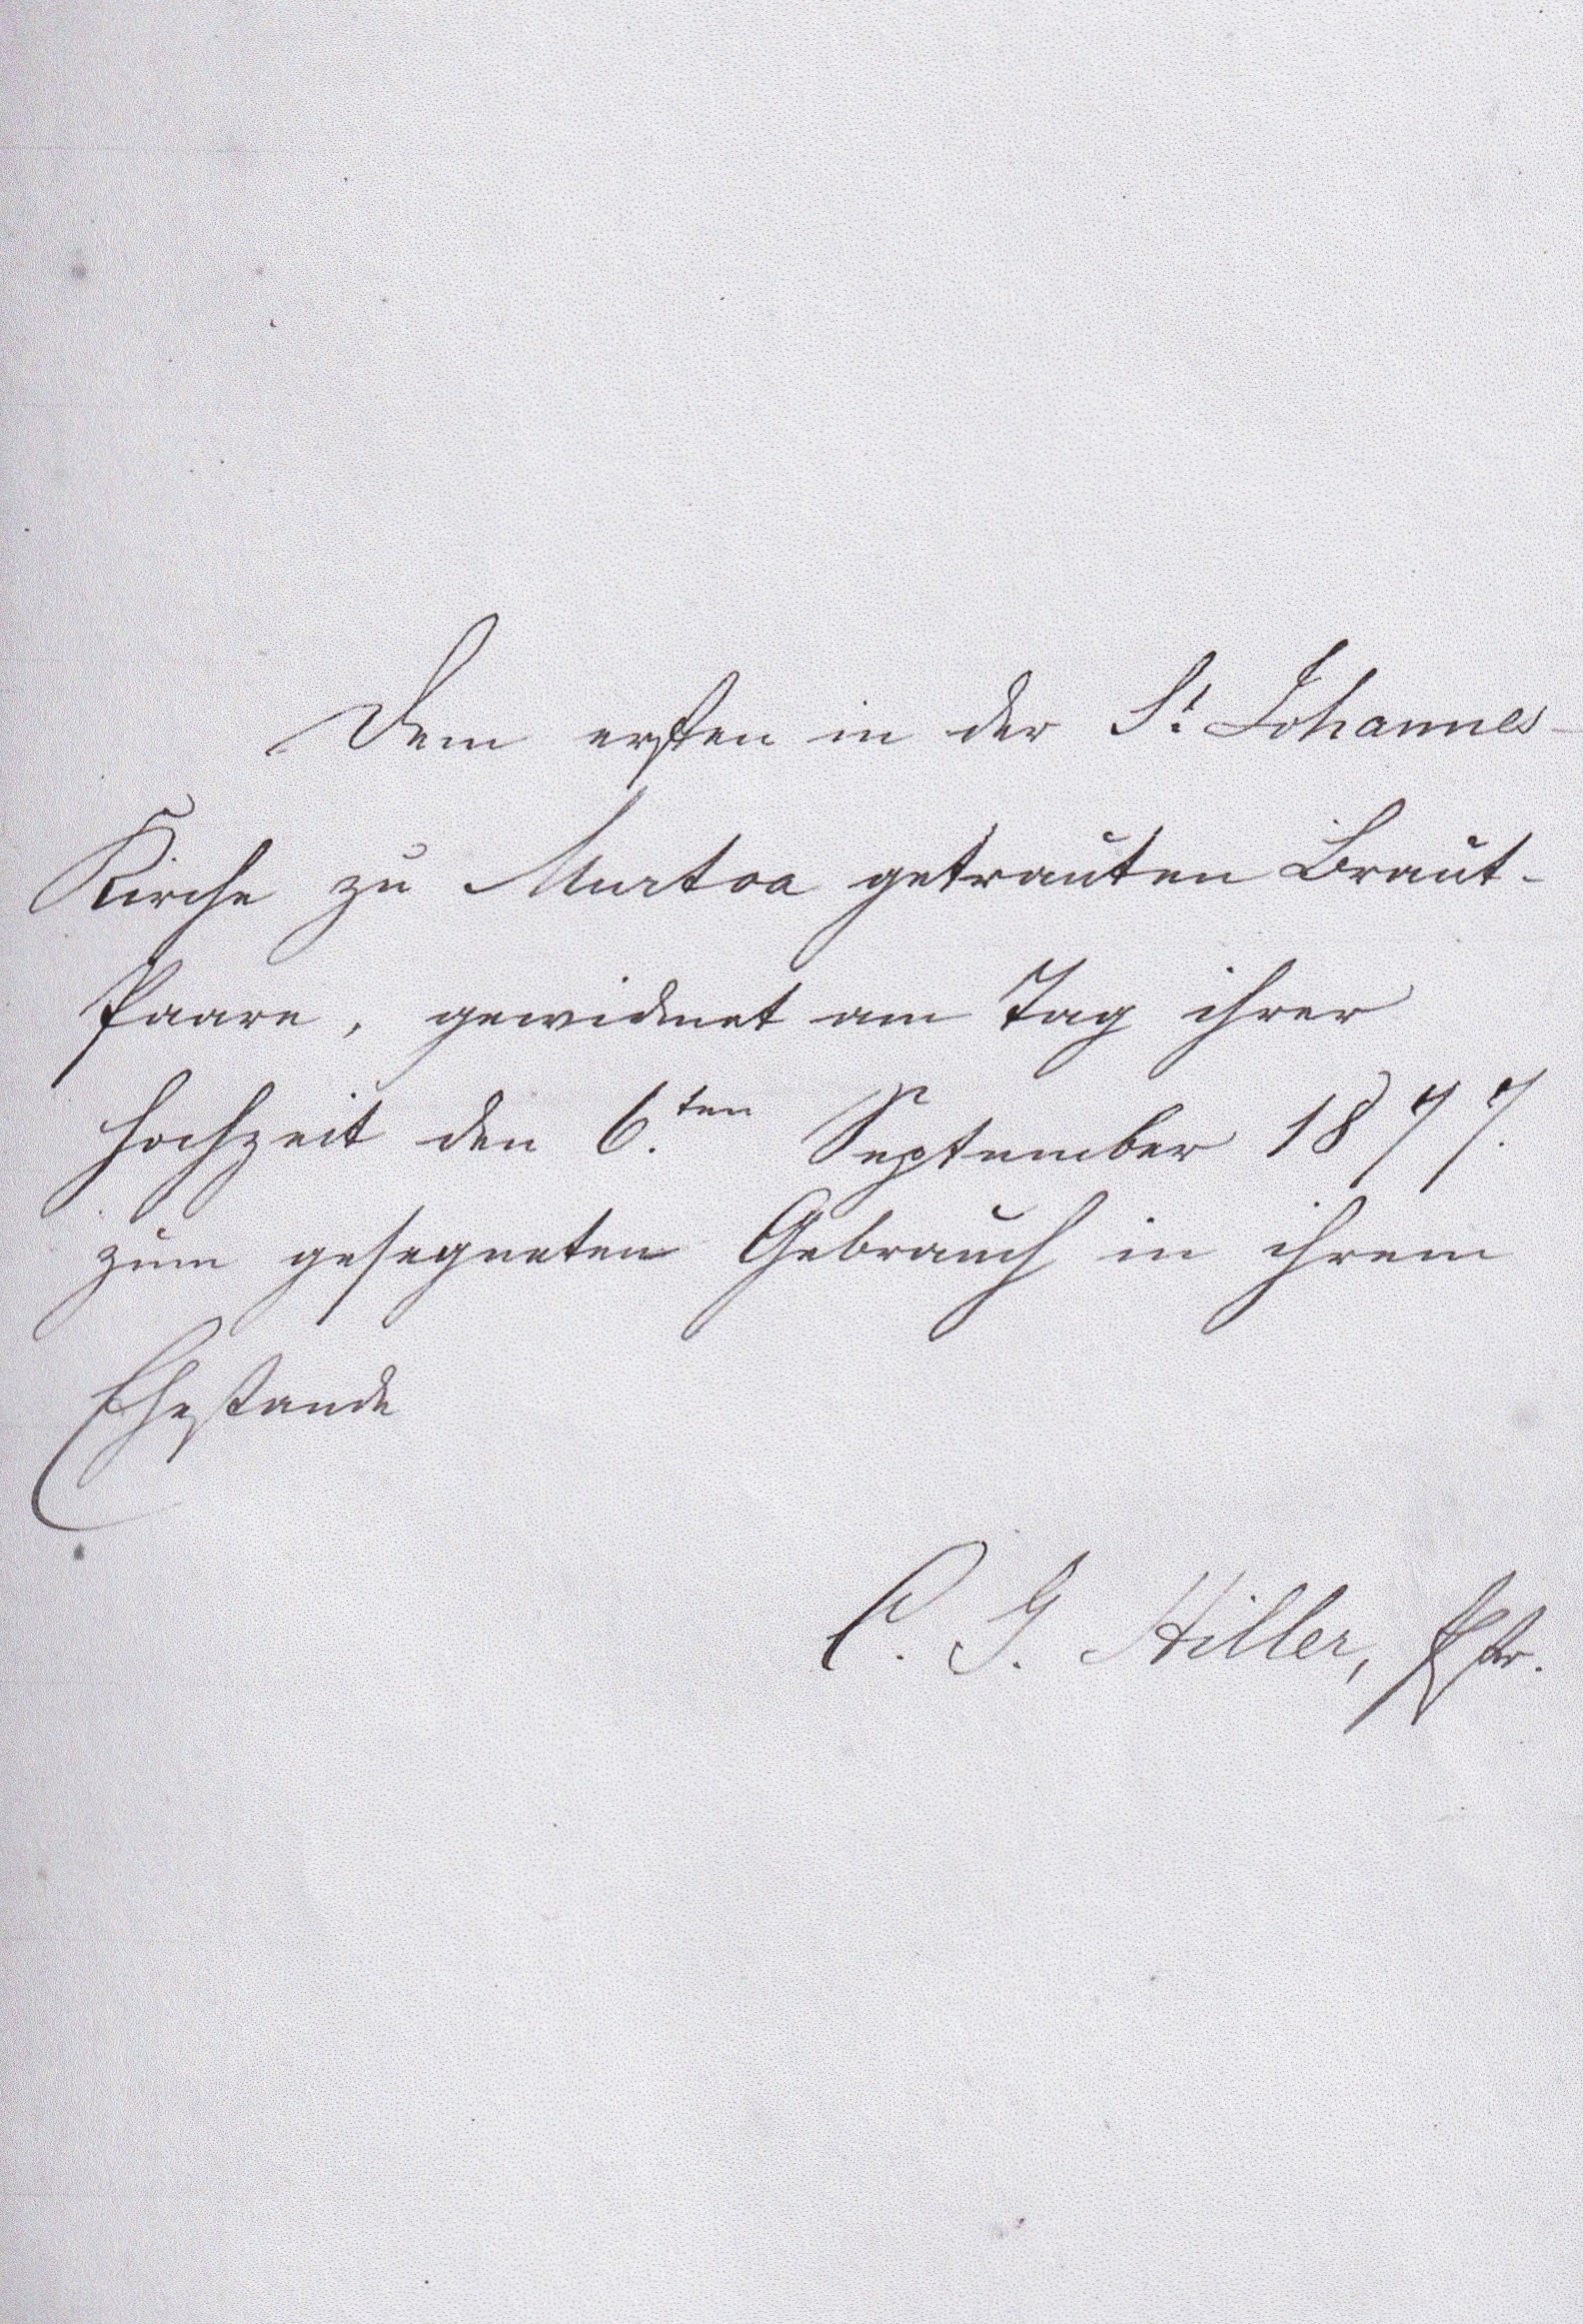 Dem ersten in der St. Johannes-
Kirche zu Murtoa getrauten Braut-
Paare, gewidmet am Tag ihrer
Hochzeit den 6.ten September 1877.
zum gesegneten Gebrauch in ihrem
Ehestande
C. G. Hiller, Pstr.